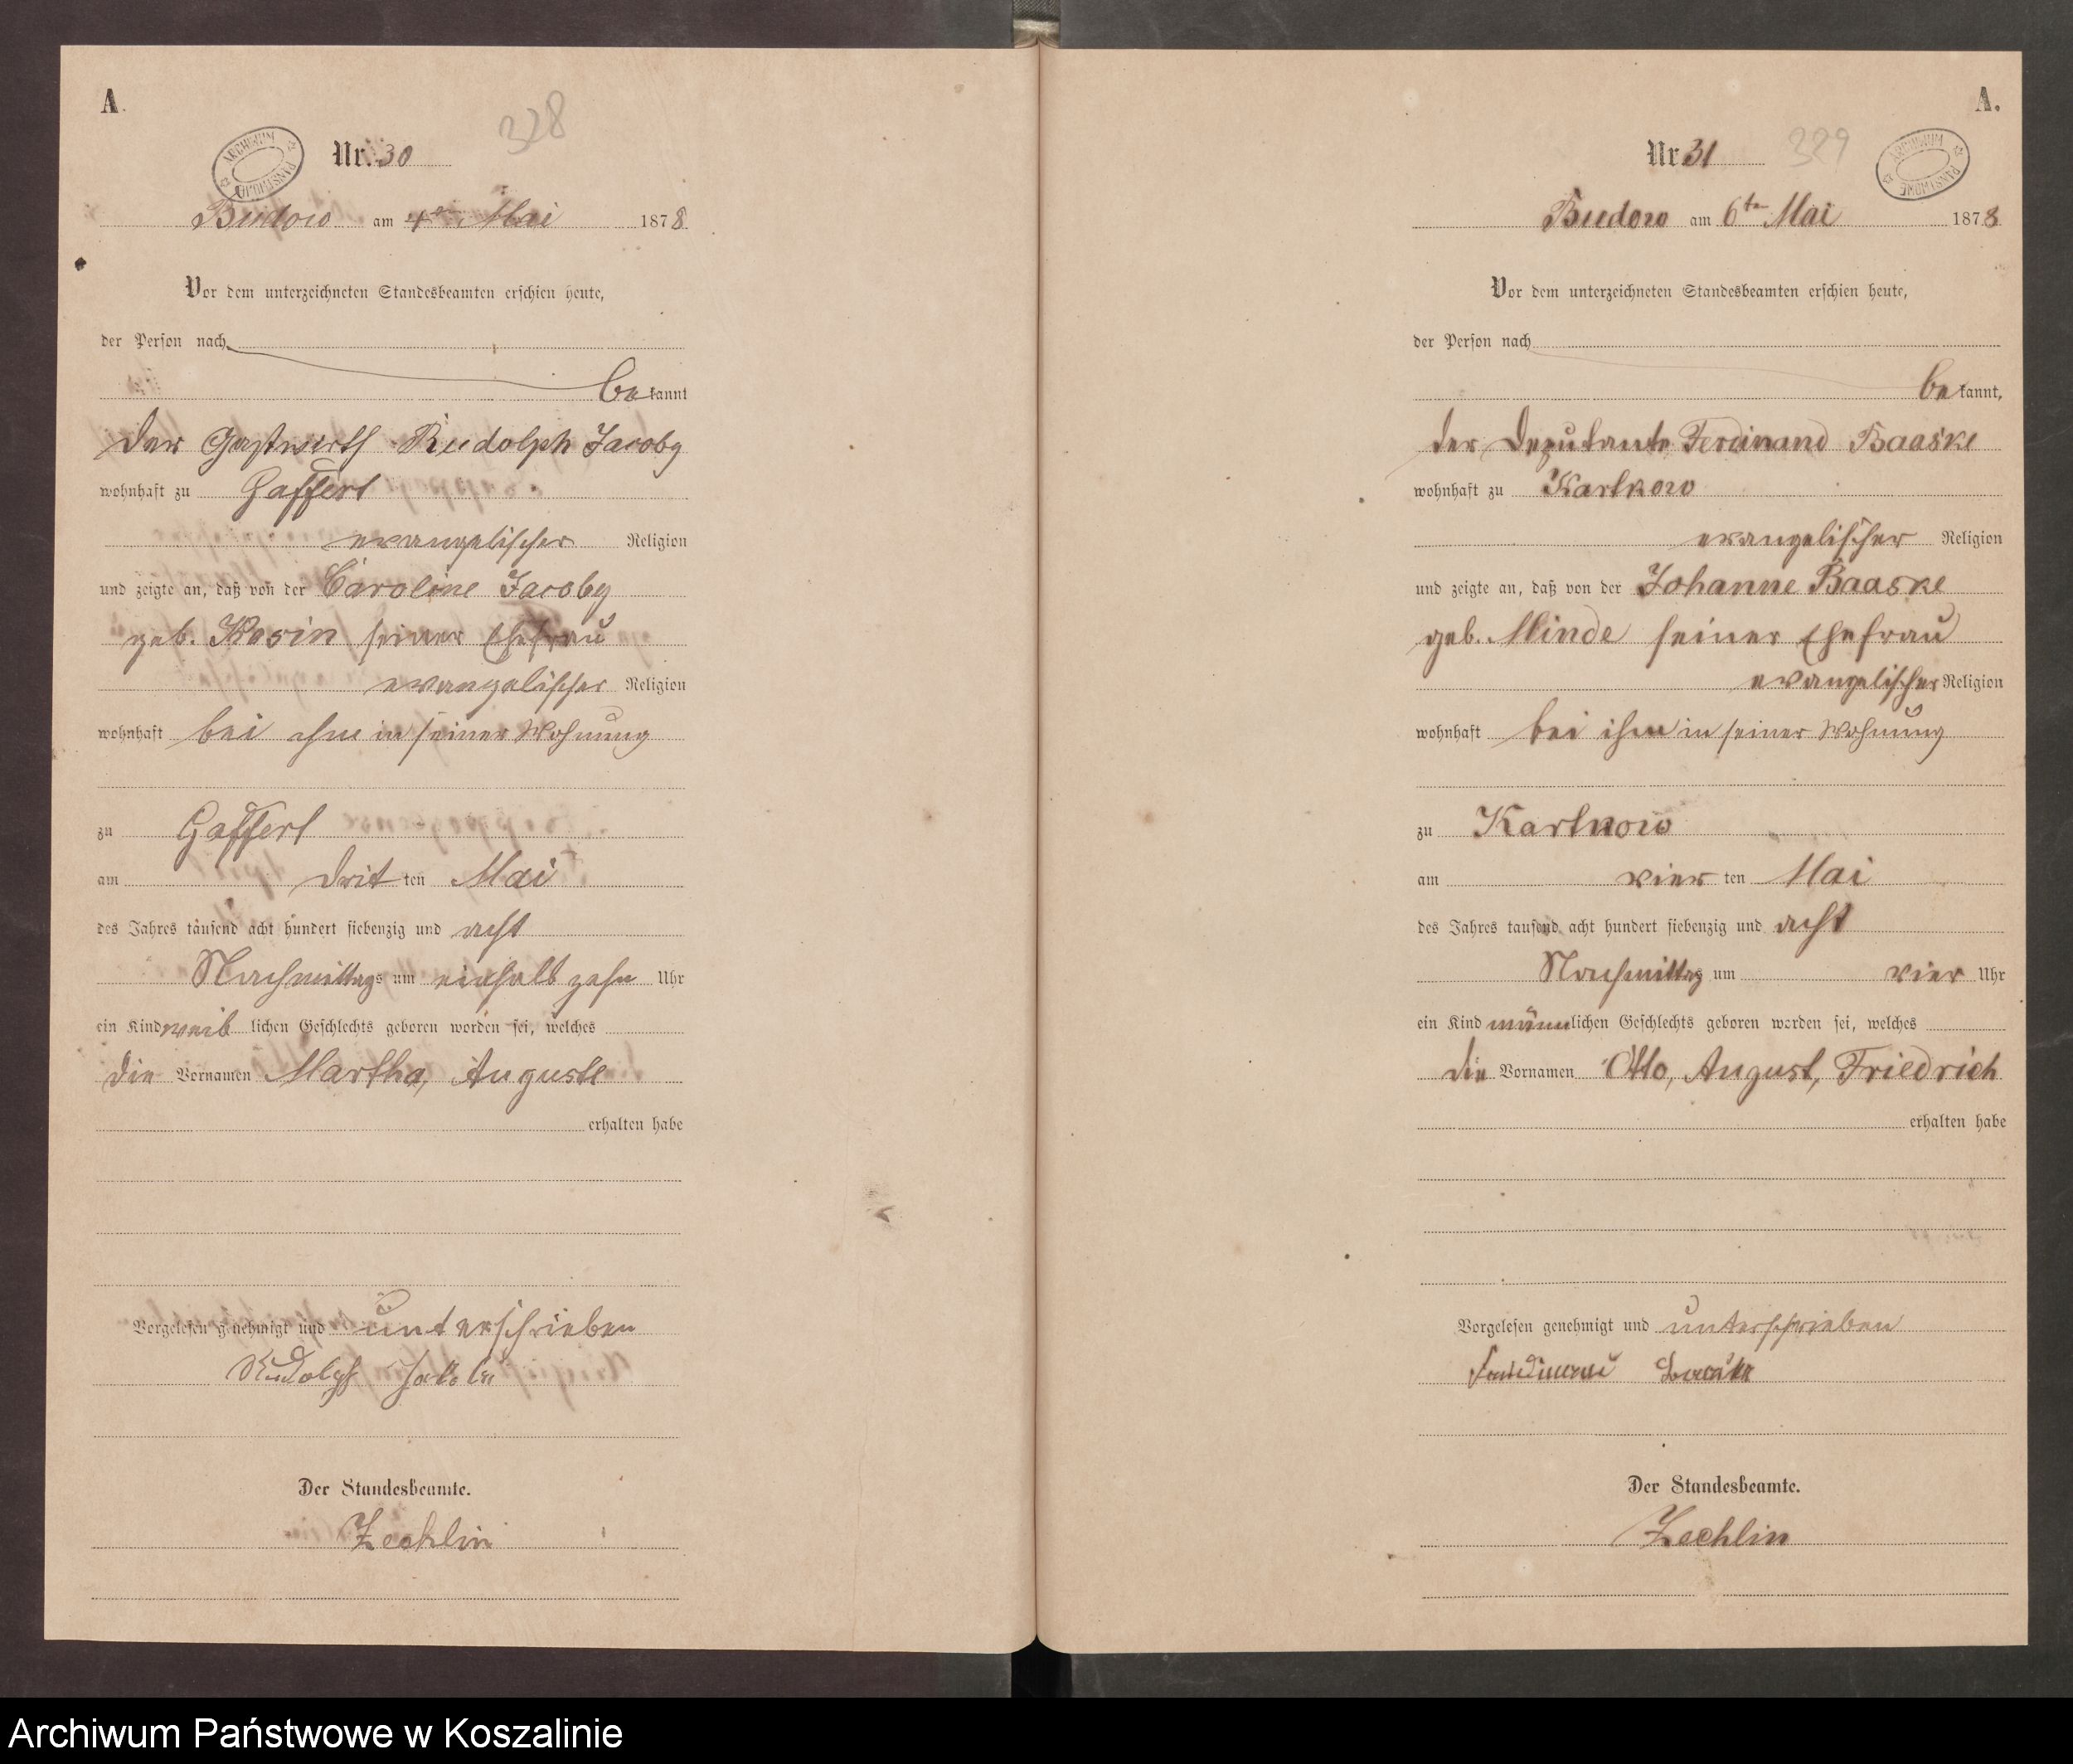 A.
328
ARCHIWUM PAŃSTWOWE
Nr. 30
Budow am 4ten Mai 1878
Vor dem unterzeichneten Standesbeamten erschien heute,
der Person nach
bekannt
der Gastwirth Rudolph Jacoby
wohnhaft zu Gaffert
evangelischer Religion
und zeigte an, daß von der Caroline Jacoby
geb. Kosin seiner Ehefrau
evangelischer Religion
wohnhaft bei ihm in seiner Wohnung
zu Gaffert
am dritten Mai
des Jahres tausend acht hundert siebenzig und acht
Nachmittags um einhalb zehn Uhr
ein Kind weiblichen Geschlechts geboren worden sei, welches
die Vornamen Martha, Auguste
erhalten habe
Vorgelesen genehmigt und unterschrieben
Rudolph Jakobi
Der Standesbeamte.
Zechlin
A.
329
ARCHIWUM PAŃSTWOWE
Nr 31
Budow am 6te Mai 1878
Vor dem unterzeichneten Standesbeamten erschien heute,
der Person nach
bekannt,
der Deputante Ferdinand Baaske
wohnhaft zu Kartkow
evangelischer Religion
und zeigte an, daß von der Johanne Baaske
geb. Minde seiner Ehefrau
evangelischer Religion
wohnhaft bei ihm in seiner Wohnung
zu Kartkow
am vierten Mai
des Jahres tausend acht hundert siebenzig und acht
Nachmittag um vier Uhr
ein Kind männlichen Geschlechts geboren worden sei, welches
die Vornamen Otto, August, Friedrich
erhalten habe
Vorgelesen genehmigt und unterschrieben
Der Standesbeamte.
Zechlin
Archiwum Państwowe w Koszalinie